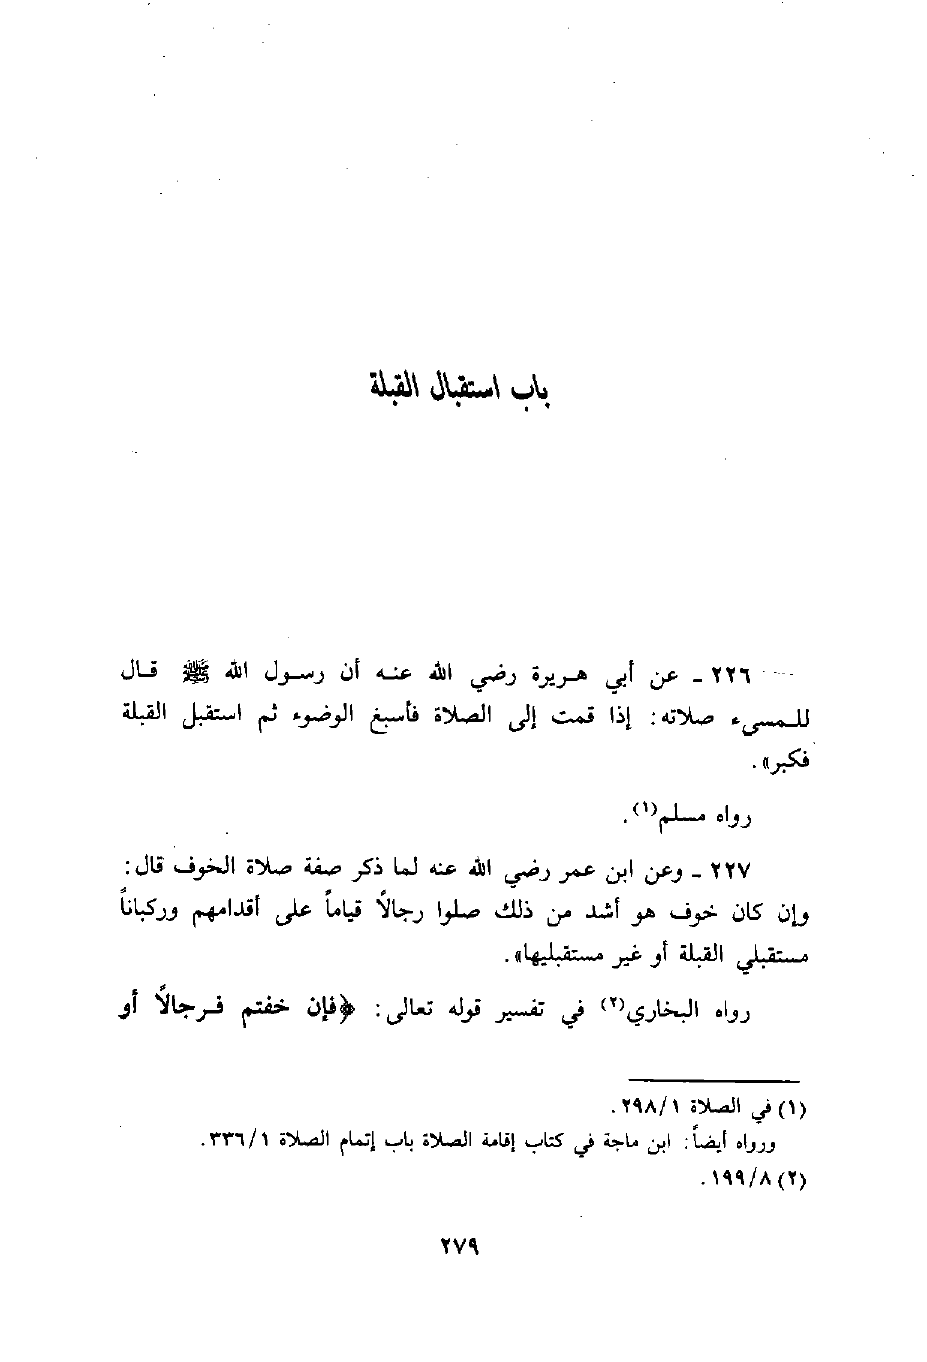 باب استقبال القبلة
٢٢٦ - عن أبي هريرة رضي الله عنه أن رسول الله ﷺ قال
للمسيء صلاته: إذا قمت إلى الصلاة فأسبغ الوضوء ثم استقبل القبلة
فكبر».
رواه مسلم(١).
٢٢٧ - وعن ابن عمر رضي الله عنه لما ذكر صفة صلاة الخوف قال:
وإن كان خوف هو أشد من ذلك صلوا رجالاً قياماً على أقدامهم وركباناً
مستقبلي القبلة أو غير مستقبليها».
رواه البخاري(٢) في تفسير قوله تعالى: ﴿فإن خفتم فرجالاً أو
(١) في الصلاة ٢٩٨/١.
ورواه أيضاً: ابن ماجة في كتاب إقامة الصلاة باب إتمام الصلاة ٣٣٦/١.
(٢) ١٩٩/٨.
٢٧٩